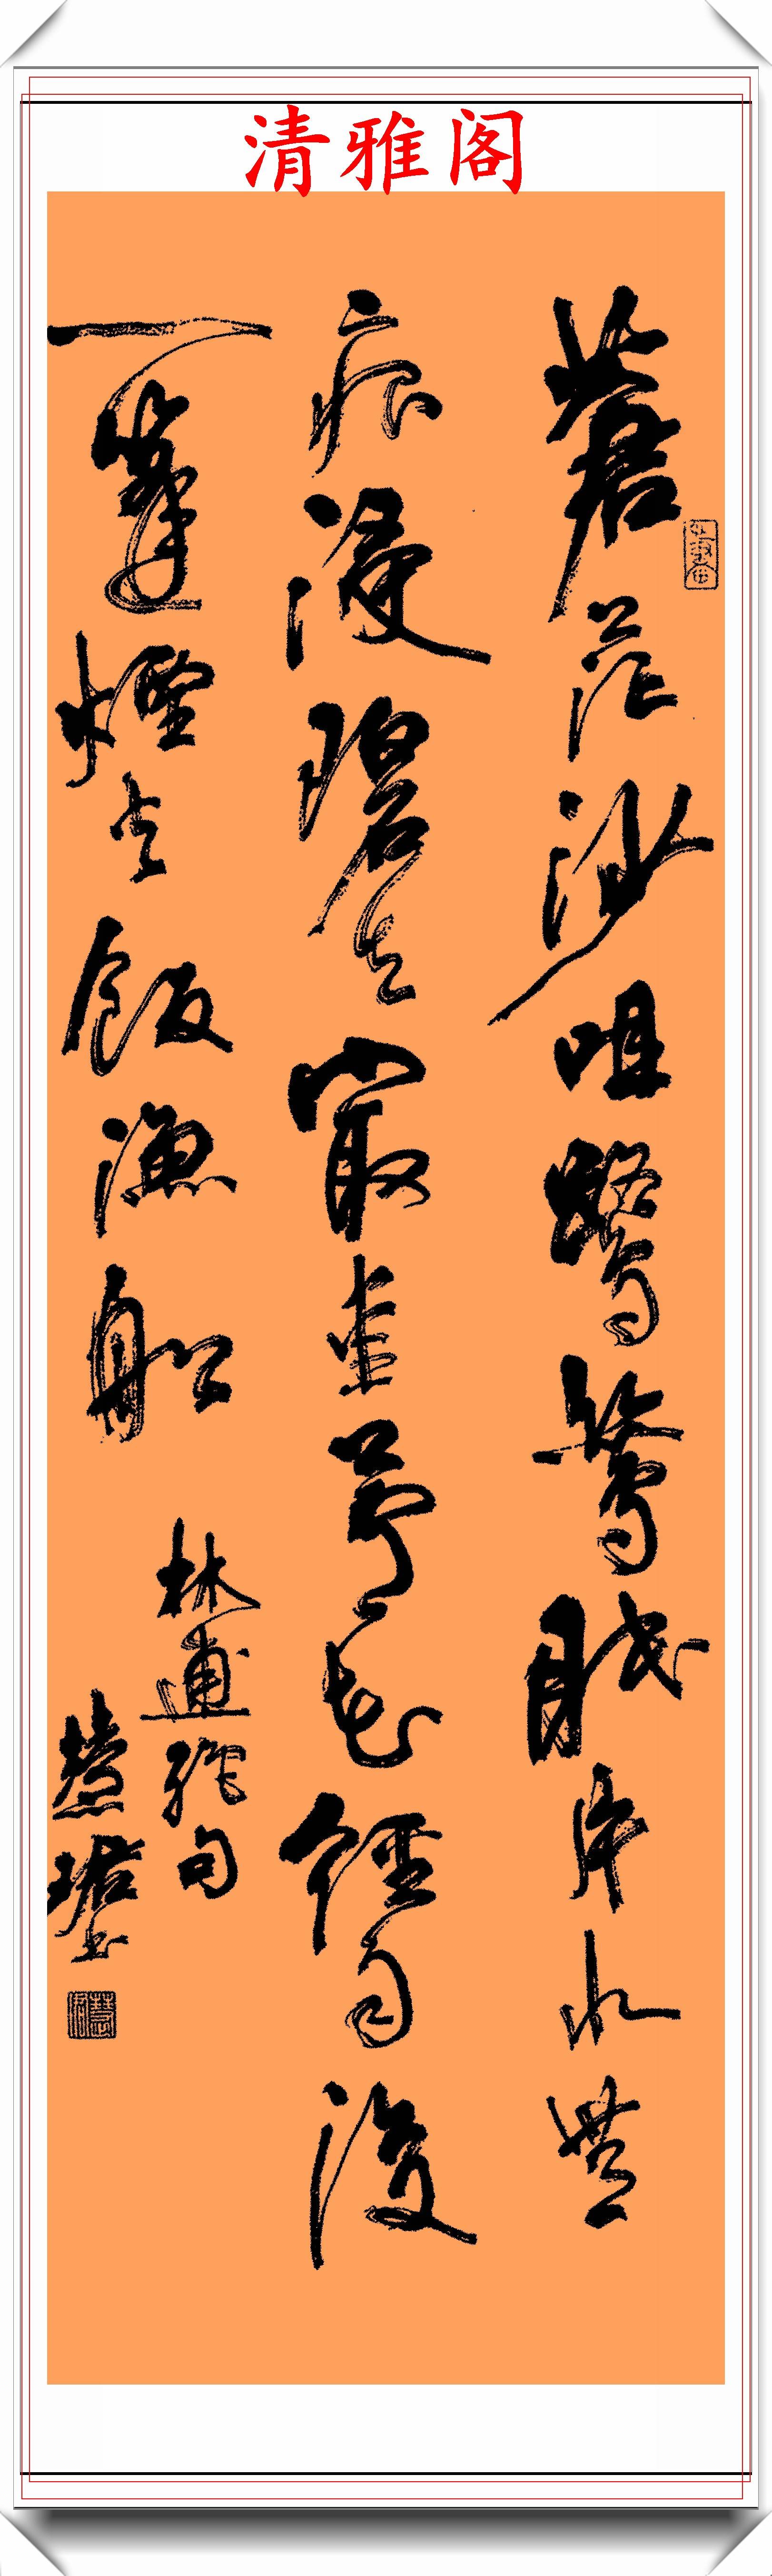 清雅阁
蒼茫沙咀鷺鷥眠片水無
痕浸碧天最愛芦花經雨後
一篷煙火飯漁船
林逋絕句
慧珺書